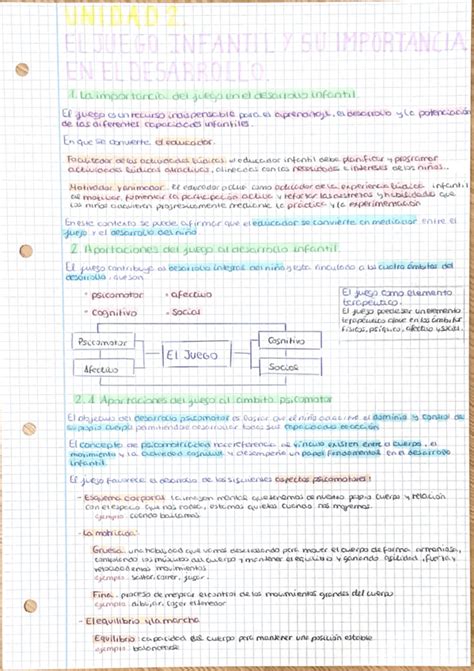 UNIDAD 2.
EL JUEGO INFANTIL Y SU IMPORTANCIA
EN EL DESARROLLO.
1. La importancia del juego en el desarrollo infantil.
El juego es un recurso indispensable para el aprendizaje, el desarrollo y la potenciación
de las diferentes capacidades infantiles.
En que se convierte el educador.
Facilitador de las actividades lúdicas: el educador infantil debe planificar y programar
actividades lúdicas atractivas, alineadas con las necesidades e intereses de los niños.
Motivador y animador. El educador actúa como de la experiencia lúdica infantil
de motivar, fomentar la participación activa y reforzar las y habilidades que
los niños adquieren progresivamente mediante la práctica y la experimentación
En este contexto se puede afirmar que el educador se convierte en mediador entre el
juego y el desarrollo del niño
2. Aportaciones del juego al desarrollo infantil.
El juego contribuye al desarrollo integral del niño y esta vinculado a los cuatro ámbitos del
desarrollo, que son:
· psicomotor · afectivo
· cognitivo · social
El juego como elemento
terapeutico.
El juego puede ser un elemento
terapéutico clave en los ámbitos
físicos, psíquico, afectivo y social.
Psicomotor
Cognitivo
El Juego
Afectivo
Social
2.1 Aportaciones del juego al ámbito psicomotor
El objetivo del desarrollo psicomotor es lograr que el niño adquiera el dominio y control de
su propio cuerpo permitiendose desarrollar todas sus capacidades de acción
El concepto de psicomotricidad hace referencia al vínculo existen entre el cuerpo, el
movimiento y la actividad cognitiva y desempeña un papel fundamental en el desarrollo
infantil.
El juego favorece el desarrollo de los siguientes aspectos psicomotores:
- Esquema corporal: la imagen mental que tenemos de nuestro propio cuerpo y relación
con el espacio que nos rodea, estemos quietos cuando nos movemos.
ejemplo: cuando bailamos
- La motricidad:
Gruesa: una habilidad que vamos desarrollando para mover el cuerpo de forma armoniosa,
los músculos del cuerpo y mantener el equilibrio y ganando agilidad, fuerza y
velocidad en los movimientos.
ejemplo: saltar, correr, jugar.
Fina: proceso de mejorar el control de los movimientos grandes del cuerpo
ejemplo: dibujar, coger el tenedor
- El equilibrio y la marcha
Equilibrio: capacidad del cuerpo para mantener una posición estable
ejemplo: